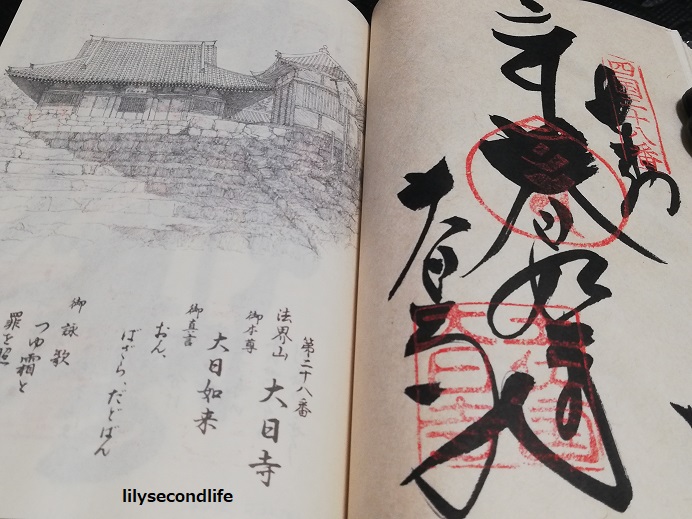 四國二十八番
大日寺
第二十八番
法界山 大日寺
御本尊
大日如来
御真言
おん、
ばざら、だどばん
御詠歌
つゆ霜と
罪を照
lilysecondlife